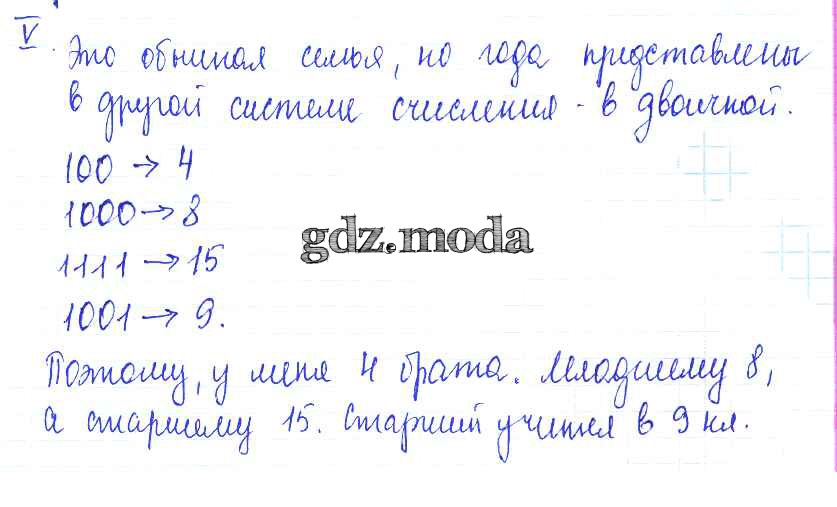 V. Это обычная семья, но года представлены
в другой системе счисления - в двоичной.
100 → 4
1000 → 8
1111 → 15
1001 → 9.
gdz.moda
Поэтому, у меня 4 брата. Младшему 8,
а старшему 15. Старший учится в 9 кл.